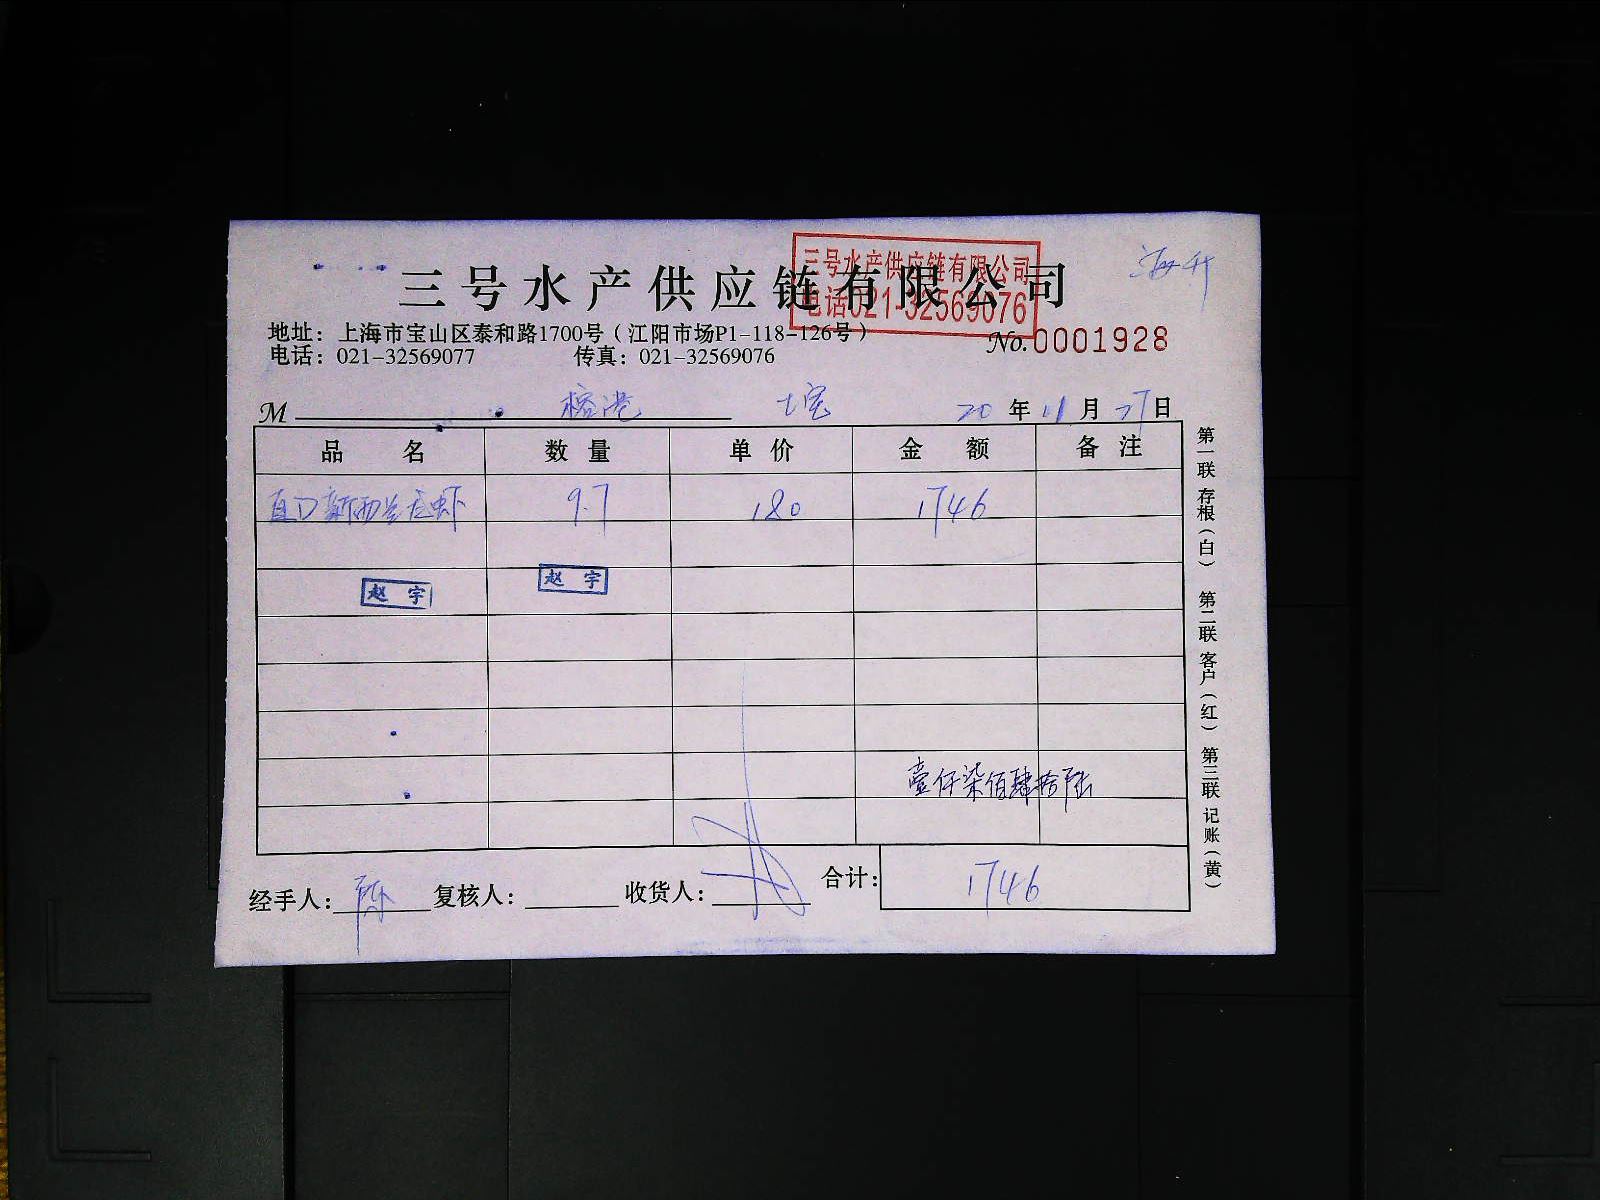 三号水产供应链有限公司
三号水产供应链有限公司
电话021-32569076
海升
地址：上海市宝山区泰和路1700号（江阳市场P1-118-126号）
电话：021-32569077 传真：021-32569076
No.0001928
M 榕港 20年11月27日
品名 数量 单价 金额 备注
直口新西兰龙虾 9.7 180 1746
赵宇 赵宇
壹仟柒佰肆拾陆
经手人：陈 复核人： 收货人： 合计：1746
第一联 存根（白） 第二联 客户（红） 第三联 记账（黄）